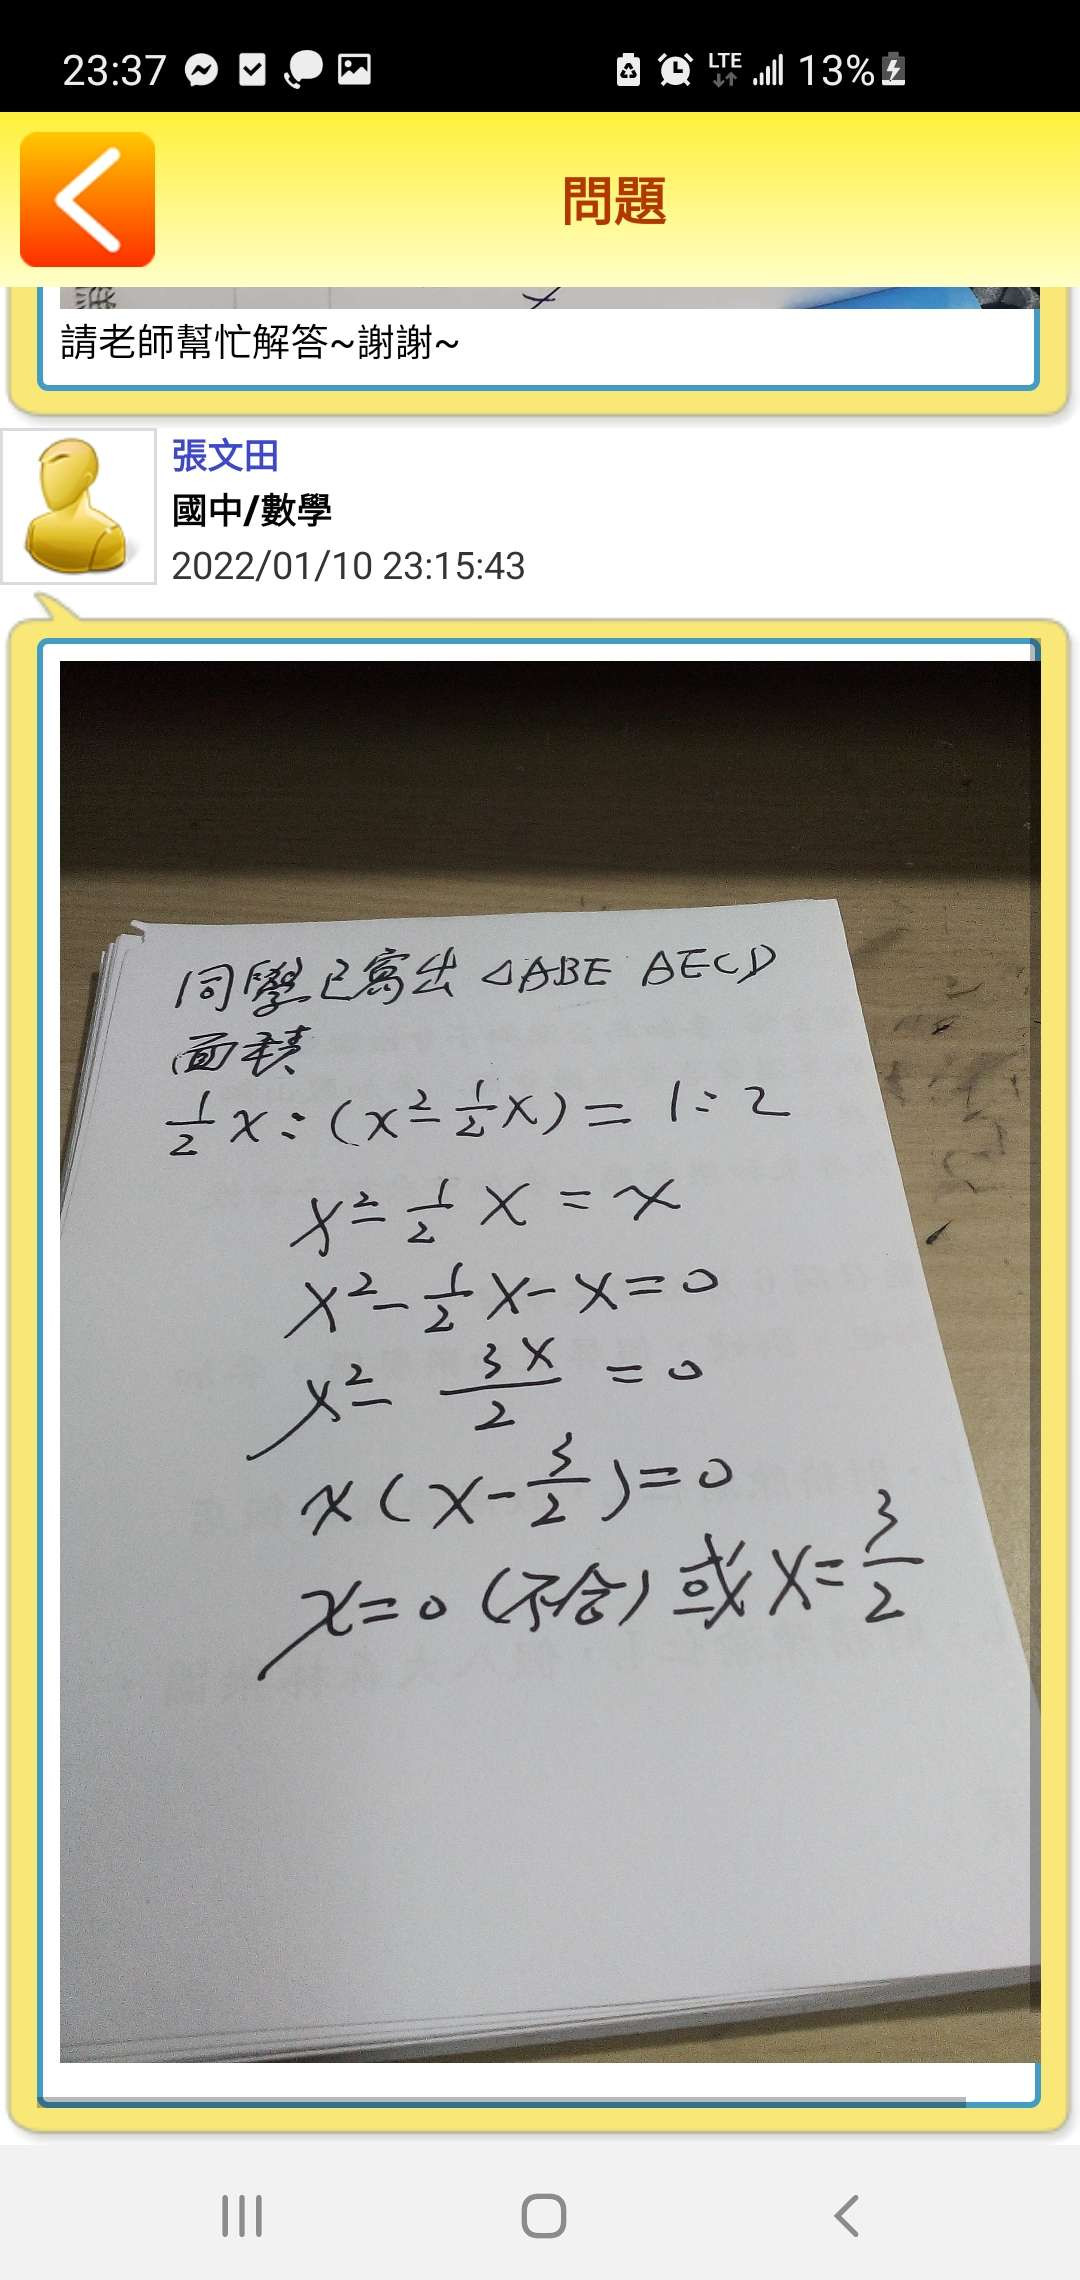 23:37 LTE 13%
問題
請老師幫忙解答~謝謝~
張文田
國中/數學
2022/01/10 23:15:43
同學已寫出 △ABE AECD
面積
1/2 x : (x² - 1/2 x) = 1 : 2
x² - 1/2 x = x
x² - 1/2 x - x = 0
x² - 3x/2 = 0
x(x - 3/2) = 0
x = 0 (不合) 或 x = 3/2